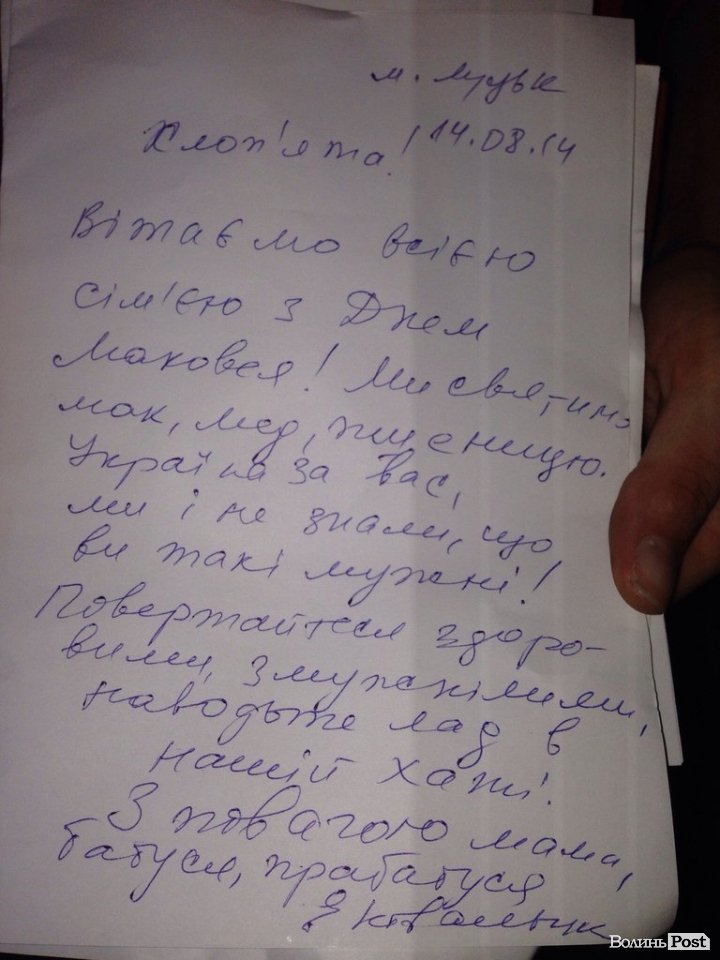 м. Луцьк
14.08.14
Хлоп'ята!
Вітаємо всією
сім'єю з Днем
Маковея! Ми святимо
мак, мед, пшеницю.
Україна за вас,
ми і не знали, що
ви такі мужні!
Повертайтеся здоро-
вими, змужнілими,
наводьте лад в
нашій хаті!
З повагою мама,
бабуся, прабабуся
Волинь Post